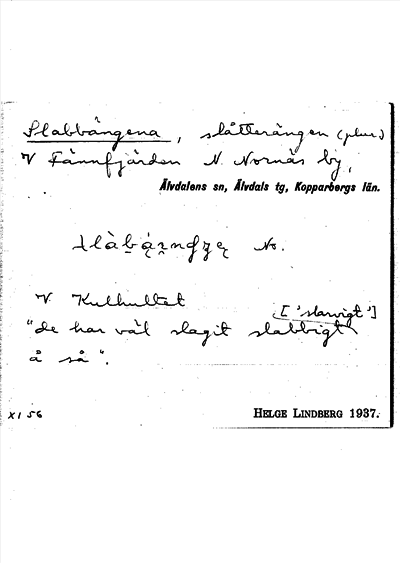 Slabbängena, slåtterängen (plur)
V Fännfjärden N. Nornäs by,
Älvdalens sn, Älvdals tg, Kopparbergs län.
No.
V Kulhultet
["slarvigt"]
"de har väl slagit slabbigt
å så".
XI 56
HELGE LINDBERG 1937.